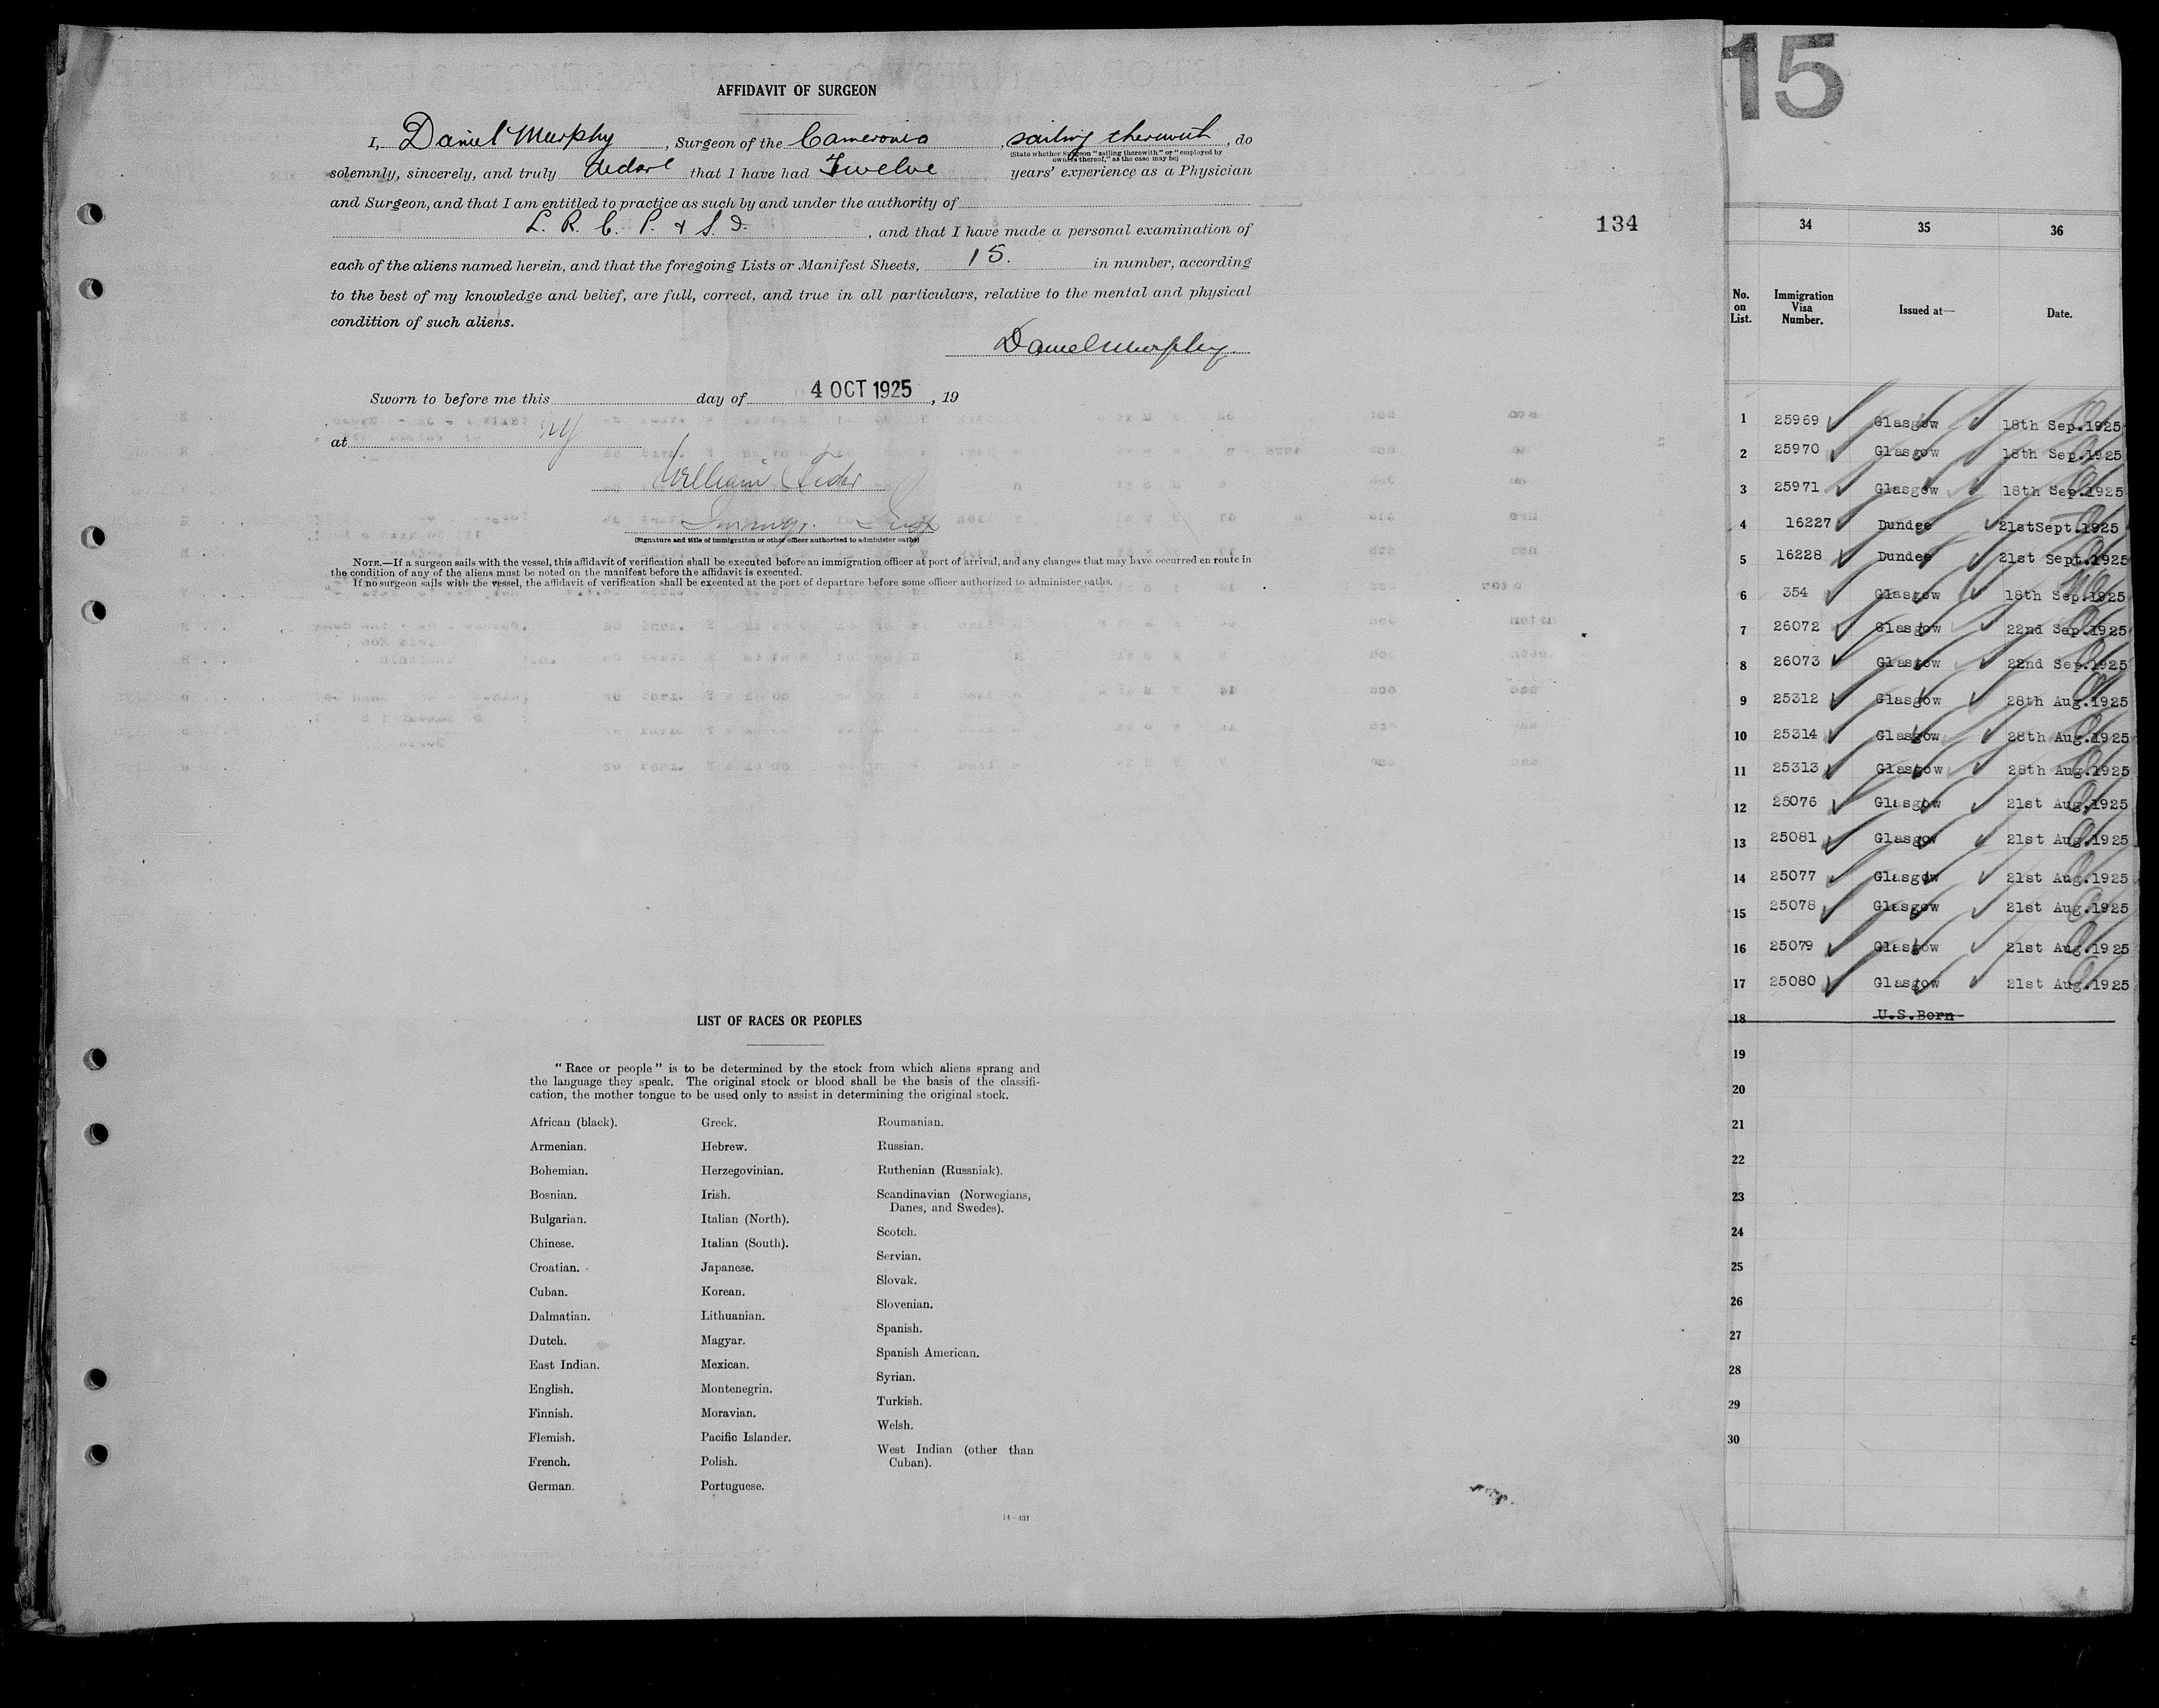 AFFIDAVIT OF SURGEON
I, Daniel Murphy, Surgeon of the Cameronia, sailing therewith, do
(State whether Surgeon "sailing therewith" or "employed by
owners thereof," as the case may be)
solemnly, sincerely, and truly declare that I have had Twelve years' experience as a Physician
and Surgeon, and that I am entitled to practice as such by and under the authority of
L. R. C. P. & S. I., and that I have made a personal examination of
each of the aliens named herein, and that the foregoing Lists or Manifest Sheets, 15. in number, according
to the best of my knowledge and belief, are full, correct, and true in all particulars, relative to the mental and physical
condition of such aliens.
Daniel Murphy.
Sworn to before me this day of 4 OCT 1925, 19
at NY
William
Immigr. Insp
(Signature and title of immigration or other officer authorized to administer oaths)
NOTE.—If a surgeon sails with the vessel, this affidavit of verification shall be executed before an immigration officer at port of arrival, and any changes that may have occurred en route in
the condition of any of the aliens must be noted on the manifest before the affidavit is executed.
If no surgeon sails with the vessel, the affidavit of verification shall be executed at the port of departure before some officer authorized to administer oaths.
134
LIST OF RACES OR PEOPLES
"Race or people" is to be determined by the stock from which aliens sprang and
the language they speak. The original stock or blood shall be the basis of the classifi-
cation, the mother tongue to be used only to assist in determining the original stock.
African (black).
Armenian.
Bohemian.
Bosnian.
Bulgarian.
Chinese.
Croatian.
Cuban.
Dalmatian.
Dutch.
East Indian.
English.
Finnish.
Flemish.
French.
German.
Greek.
Hebrew.
Herzegovinian.
Irish.
Italian (North).
Italian (South).
Japanese.
Korean.
Lithuanian.
Magyar.
Mexican.
Montenegrin.
Moravian.
Pacific Islander.
Polish.
Portuguese.
Roumanian.
Russian.
Ruthenian (Russniak).
Scandinavian (Norwegians,
Danes, and Swedes).
Scotch.
Servian.
Slovak.
Slovenian.
Spanish.
Spanish American.
Syrian.
Turkish.
Welsh.
West Indian (other than
Cuban).
14—431
15
34 35 36
No. on List. Immigration Visa Number. Issued at— Date.
1 25969 Glasgow 18th Sep.1925
2 25970 Glasgow 18th Sep.1925
3 25971 Glasgow 18th Sep.1925
4 16227 Dundee 21stSept.1925
5 16228 Dundee 21st Sept.1925
6 354 Glasgow 18th Sep.1925
7 26072 Glasgow 22nd Sep.1925
8 26073 Glasgow 22nd Sep.1925
9 25312 Glasgow 28th Aug.1925
10 25314 Glasgow 28th Aug.1925
11 25313 Glasgow 28th Aug.1925
12 25076 Glasgow 21st Aug.1925
13 25081 Glasgow 21st Aug.1925
14 25077 Glasgow 21st Aug.1925
15 25078 Glasgow 21st Aug.1925
16 25079 Glasgow 21st Aug.1925
17 25080 Glasgow 21st Aug.1925
18 U.S.Born
19
20
21
22
23
24
25
26
27
28
29
30